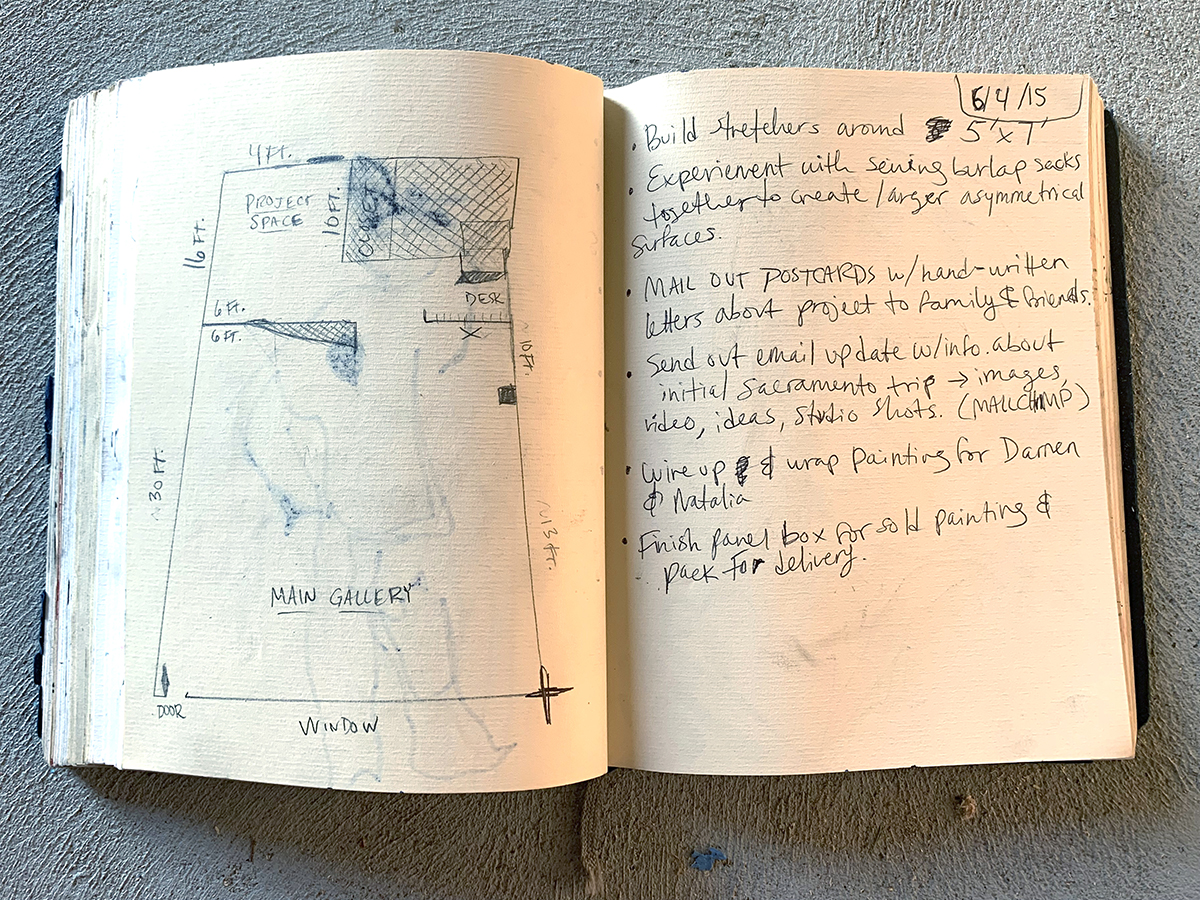 4 FT.
PROJECT
SPACE
10 FT.
CLOSET
16 FT.
DESK
6 FT.
6 FT.
X
~10 FT.
~30 FT.
~13 FT.
MAIN GALLERY
DOOR
WINDOW
6/4/15
• Build stretchers around 5' x 7'
• Experienment with sewing burlap sacks
together to create larger asymmetrical
surfaces.
• MAIL OUT POSTCARDS w/hand-written
letters about project to family & friends.
• Send out email update w/info. about
initial Sacramento trip → images,
video, ideas, studio shots. (MAILCHIMP)
• Wire up & wrap painting for Darren
& Natalia
• Finish panel box for sold painting &
pack for delivery.